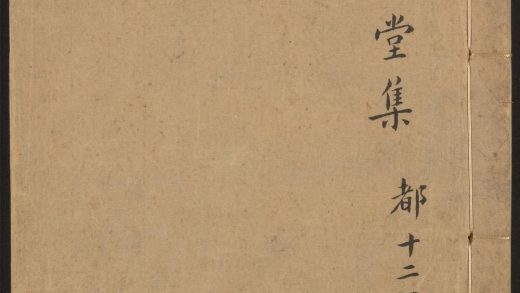 堂集 都十二